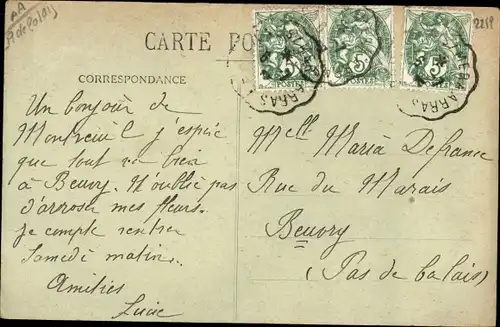 AA
P de Calais
2219
CARTE PO
CORRESPONDANCE
5
POSTES
5
POSTES
5
POSTES
ARRAS
ARRAS
Un bonjour de
Montreuil j'espère
que tout va bien
à Beuvry. N'oublie pas
d'arroser mes fleurs.
Je compte rentrer
Samedi matin.
Amitiés
Lucie
Melle Maria Defrance
Rue du Marais
Beuvry
(Pas de Calais)